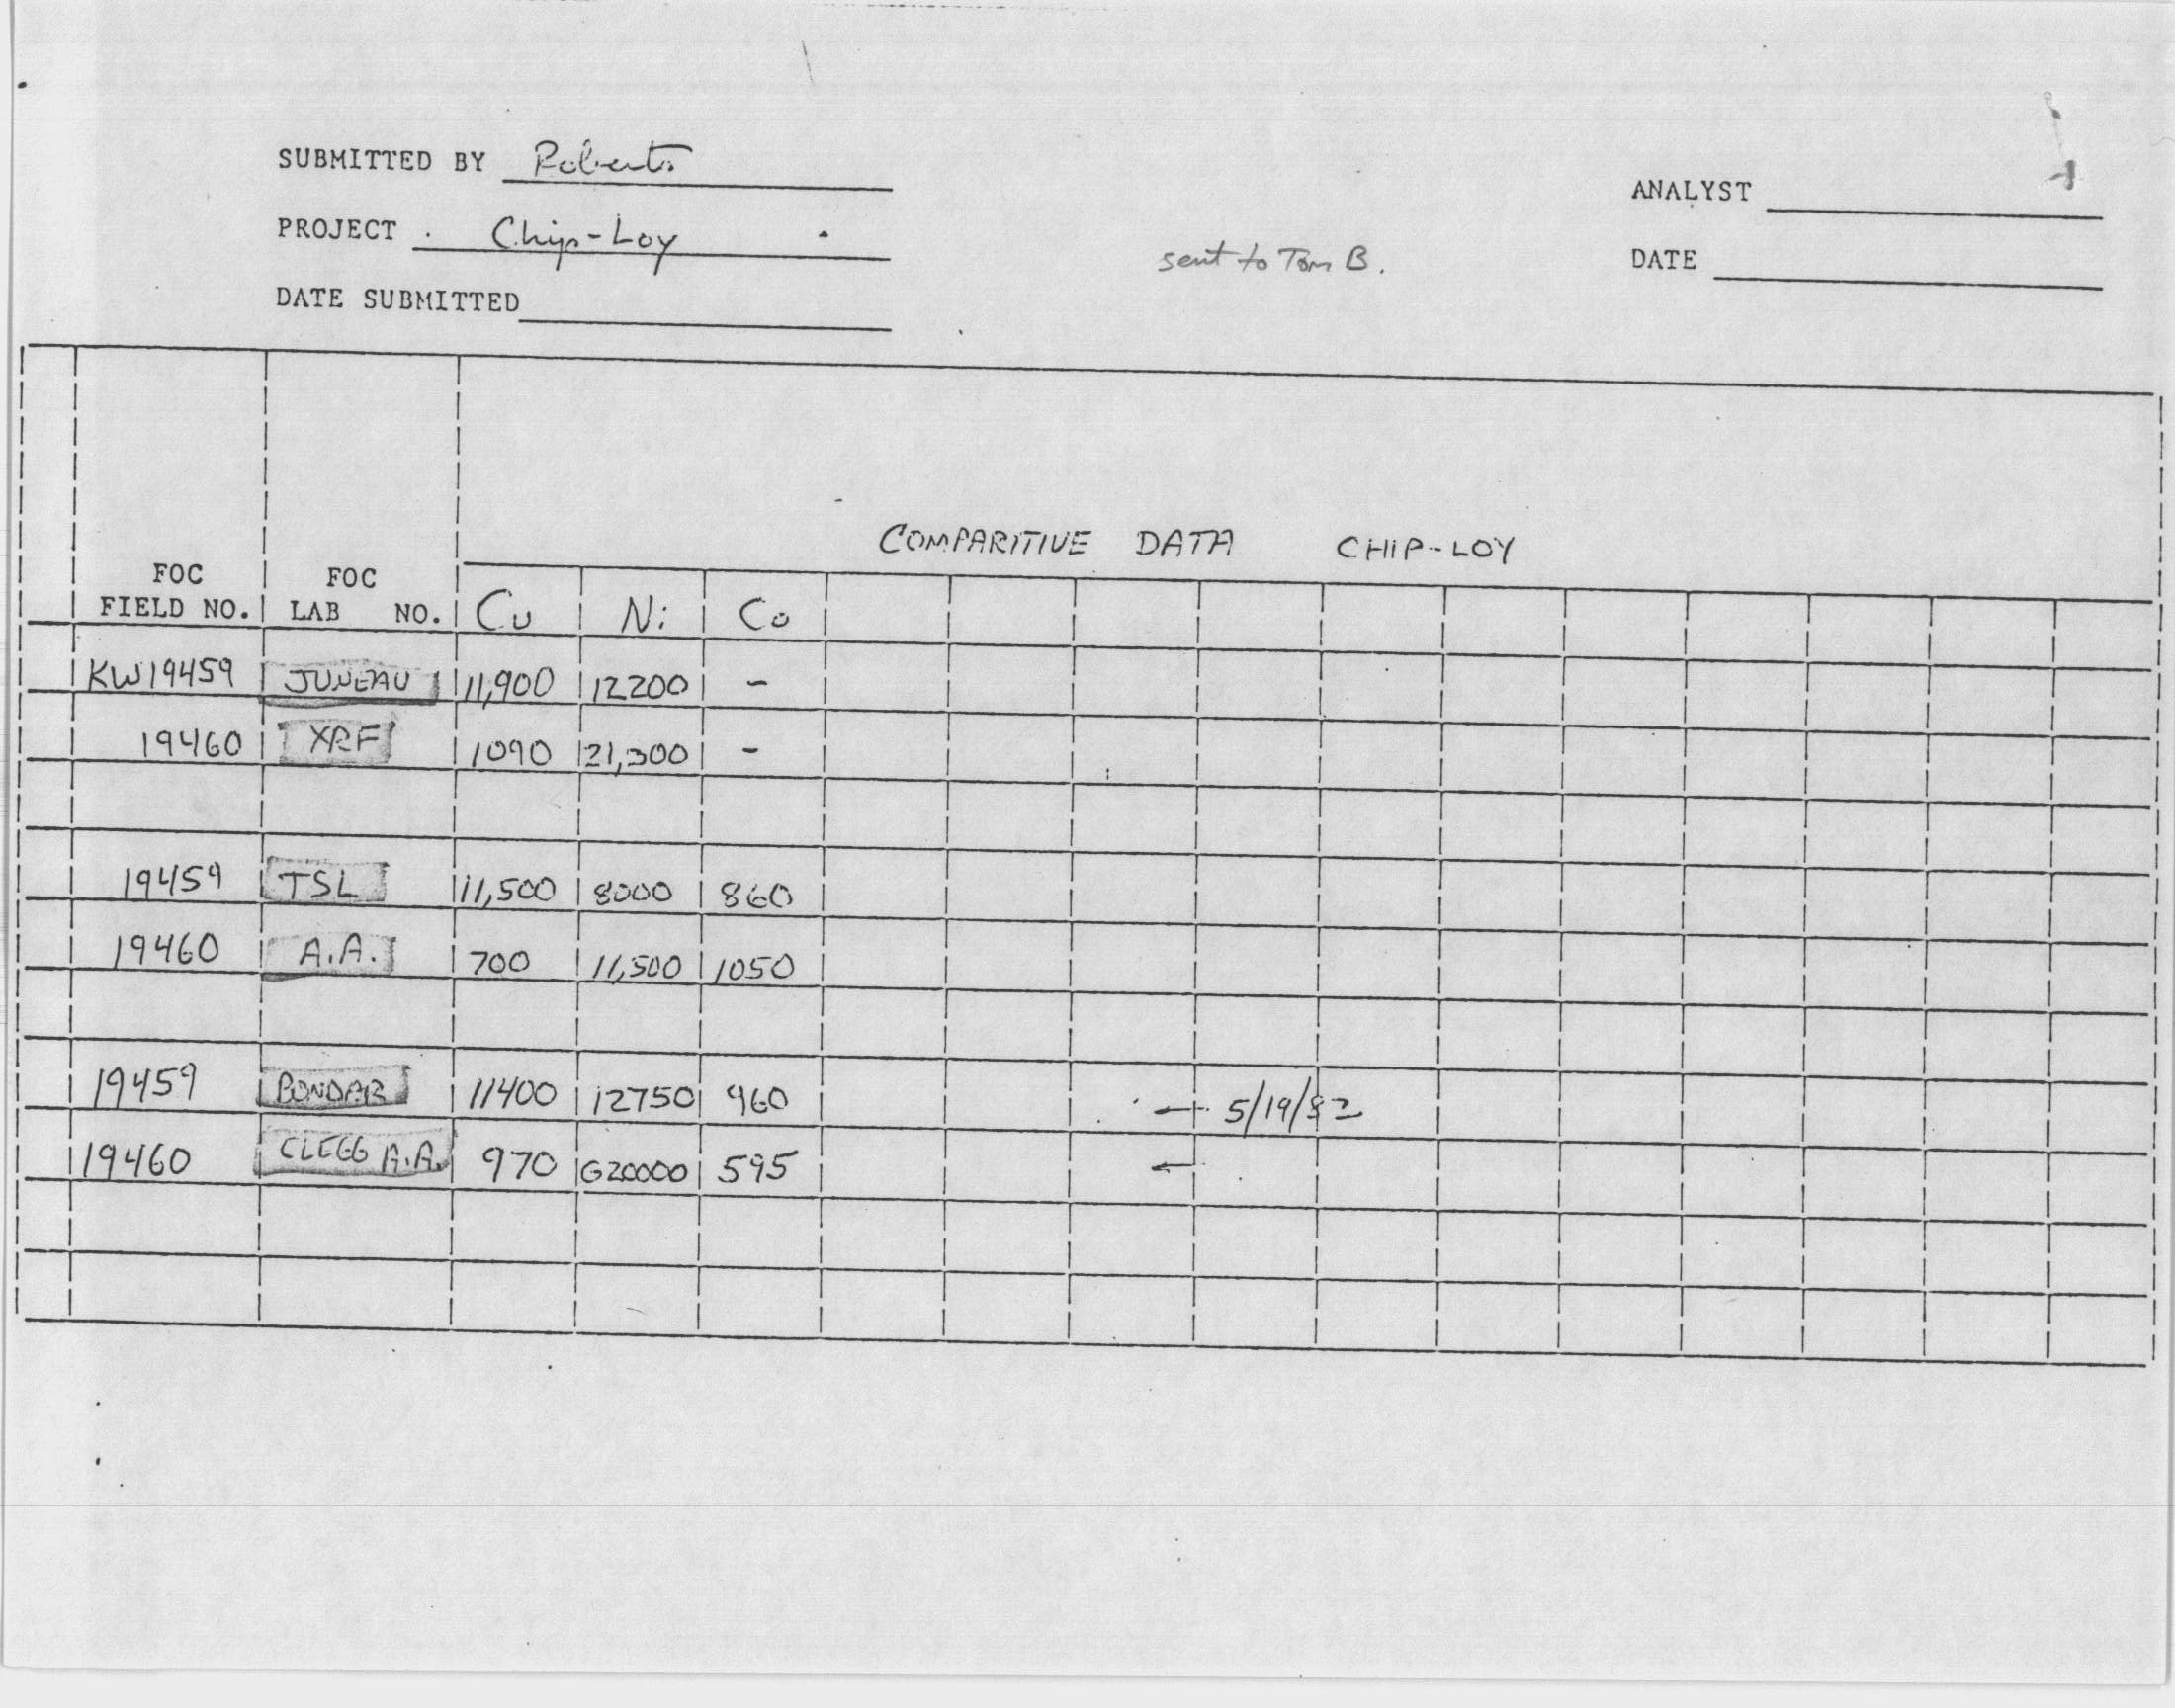 SUBMITTED BY Roberts
ANALYST
PROJECT Chip-Loy
sent to Tom B.
DATE
DATE SUBMITTED
COMPARITIVE DATA CHIP-LOY
FOC FIELD NO. FOC LAB NO. Cu Ni Co
KW19459 JUNEAU 11,900 12200 -
19460 XRF 1090 21,300 -
19459 TSL 11,500 8000 860
19460 A.A. 700 11,500 1050
19459 BONDAR 11400 12750 960 ← 5/19/82
19460 CLEGG A.A. 970 G20000 595 ←